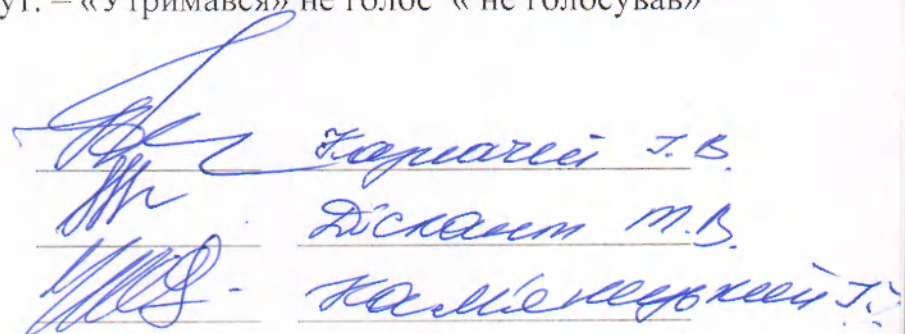 ут. – «Утримався» не голос – « не голосував»
Карпачей І.В.
Діскант М.В.
Кам'янецький І.